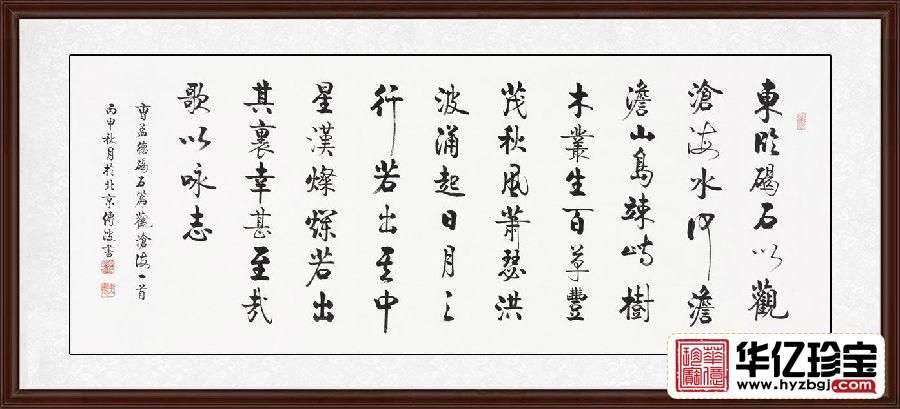 東臨碣石以觀
滄海水何澹
澹山島竦峙樹
木叢生百草豐
茂秋風蕭瑟洪
波涌起日月之
行若出其中
星漢燦爛若出
其裏幸甚至哉
歌以咏志
曹孟德碣石篇觀滄海一首
丙申秋月於北京傅波書
华亿珍宝
www.hyzbgj.com